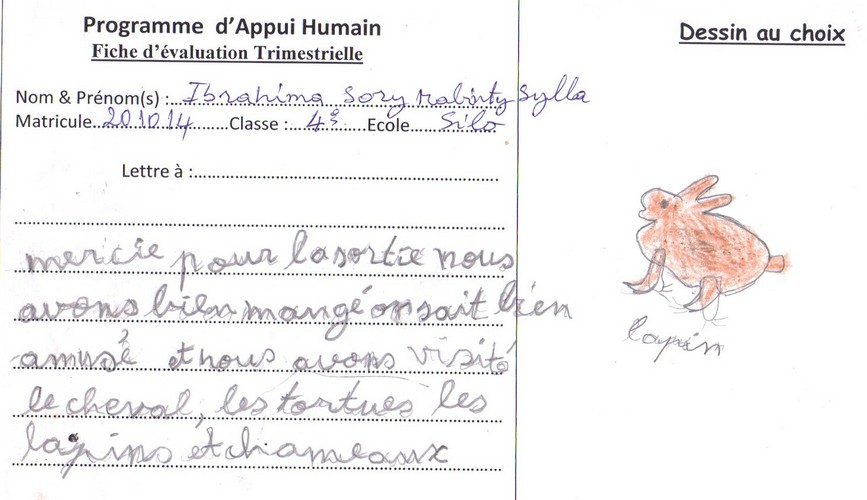 Programme d'Appui Humain
Fiche d'évaluation Trimestrielle
Dessin au choix
Nom & Prénom(s) : Ibrahima Sory Mabinty Sylla
Matricule 201014 Classe : 4è Ecole Silo
Lettre à :
mercie pour la sortie nous
avons bien mangé on sait bien
amusé et nous avons visité
le cheval, les tortues les
lapins et chameaux
lapin